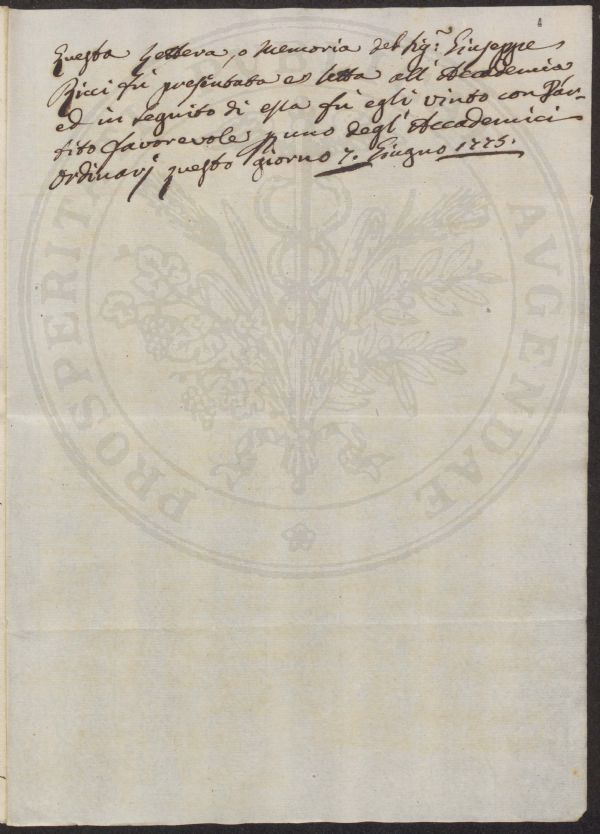 Questa Lettera, o Memoria del Sig.r Giuseppe
Ricci fù presentata e letta all' Accademia
ed in seguito di essa fù egli vinto con Par-
tito favorevole p uno degl' Accademici
Ordinarj questo giorno 7. Giugno 1775.
PROSPERITA
AUGENDAE